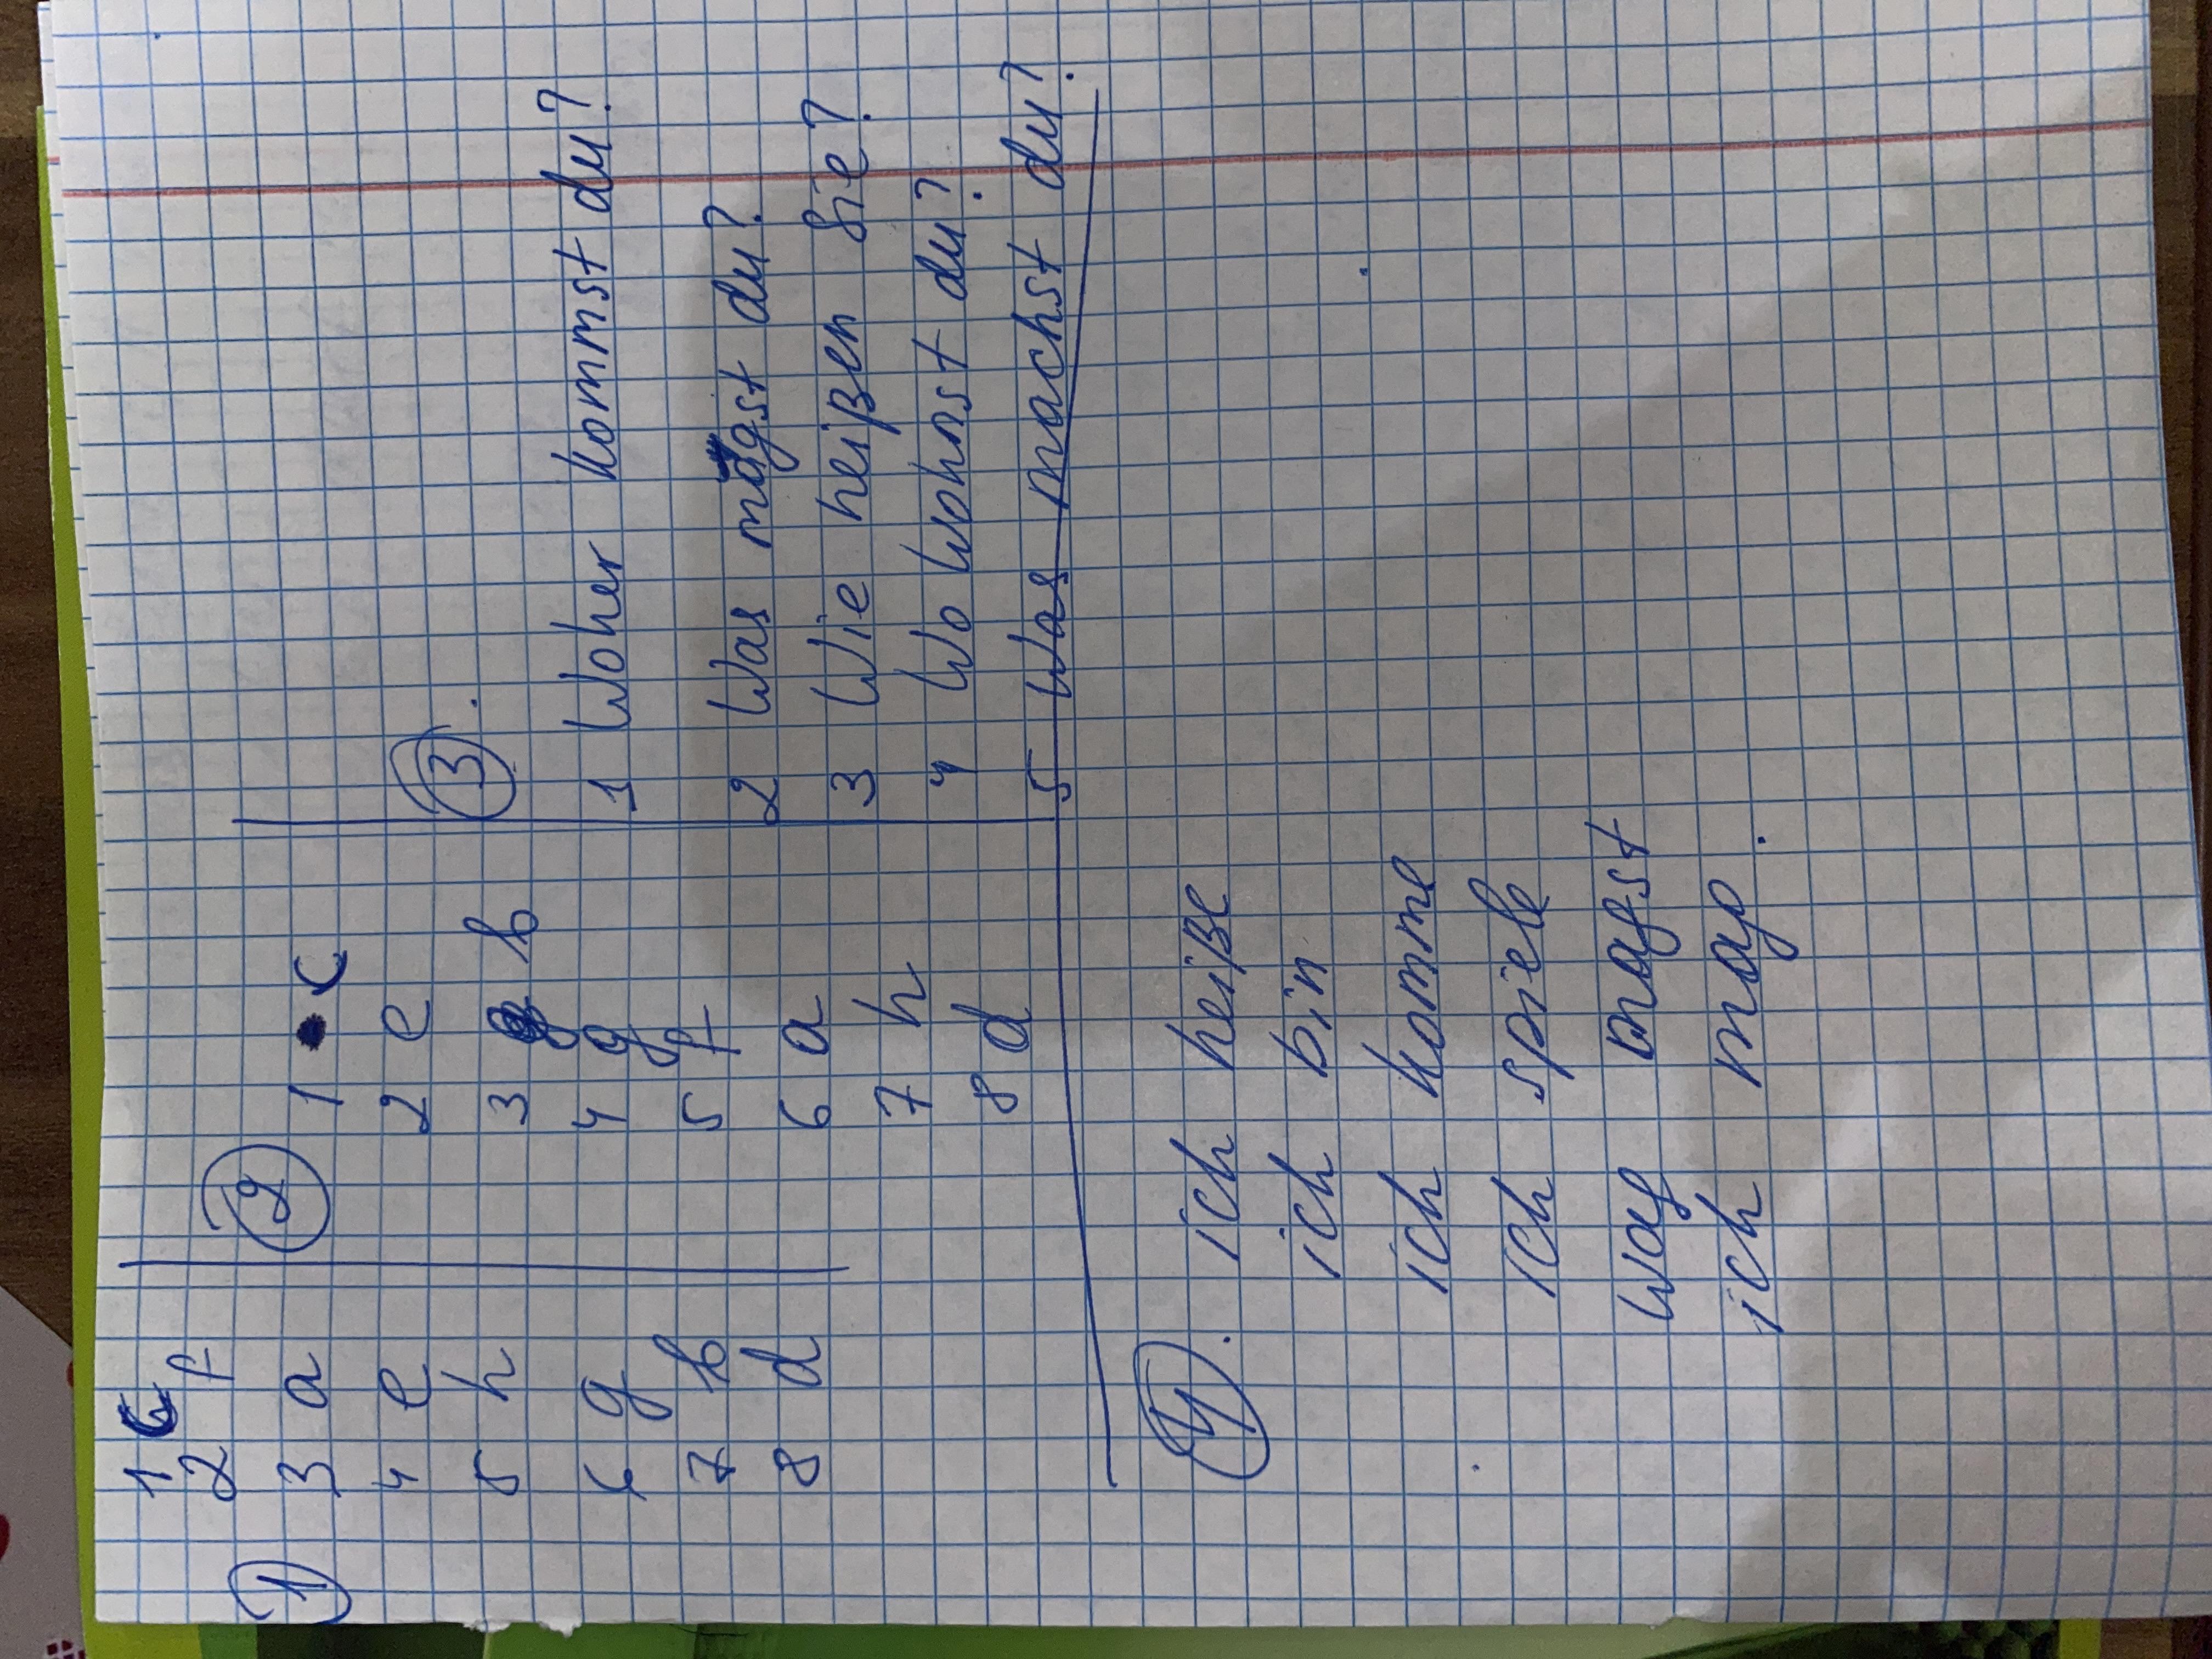 1
1 c
2 f
3 a
4 e
5 h
6 g
7 b
8 d
2
1 c
2 e
3 b
4 g
5 f
6 a
7 h
8 d
3.
1 Woher kommst du?
2 Was magst du?
3 Wie heißen Sie?
4 Wo wohnst du?
5 Was machst du?
4.
ich heiße
ich bin
ich komme
ich spiele
magst
ich mag.